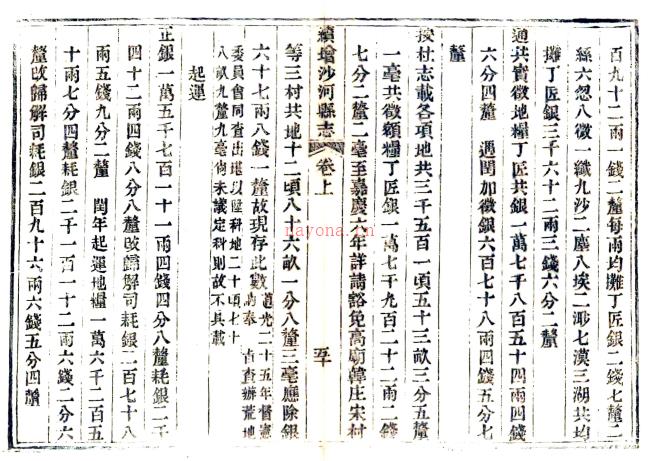 百九十二兩一錢二釐每兩均攤丁匠銀二錢七釐二
絲六忽八微一纖九沙二塵八埃二渺七漠三湖共均
攤丁匠銀三千六十二兩三錢六分二釐
通共實徵地糧丁匠共銀一萬七千八百五十四兩四錢
六分四釐 遇閏加徵銀六百七十八兩四錢五分七
釐
按杜志載各項地共三千五百一頃五十三畝三分五釐
一毫共徵額糧丁匠銀一萬七千九百二十二兩二錢
七分二釐二毫至嘉慶六年詳請豁免高廟韓庄宋村
續增沙河縣志 卷上 至
等三村共地十二頃八十六畝一分八釐三毫應除銀
六十七兩八錢一釐故現存此數道光二十五年督憲
札奉 旨查辦荒地
委員會同查出堪以陞科地二十頃七十
八畝九釐九毫尚未議定科則故不具載
起運
正銀一萬五千七百一十一兩四錢四分八釐耗銀二千
四十二兩四錢八分八釐改歸解司耗銀二百七十八
兩五錢九分二釐 閏年起運地糧一萬六千二百五
十兩七分四釐耗銀二千一百一十二兩六錢二分六
釐改歸解司耗銀二百九十六兩六錢五分四釐
nayona.cn